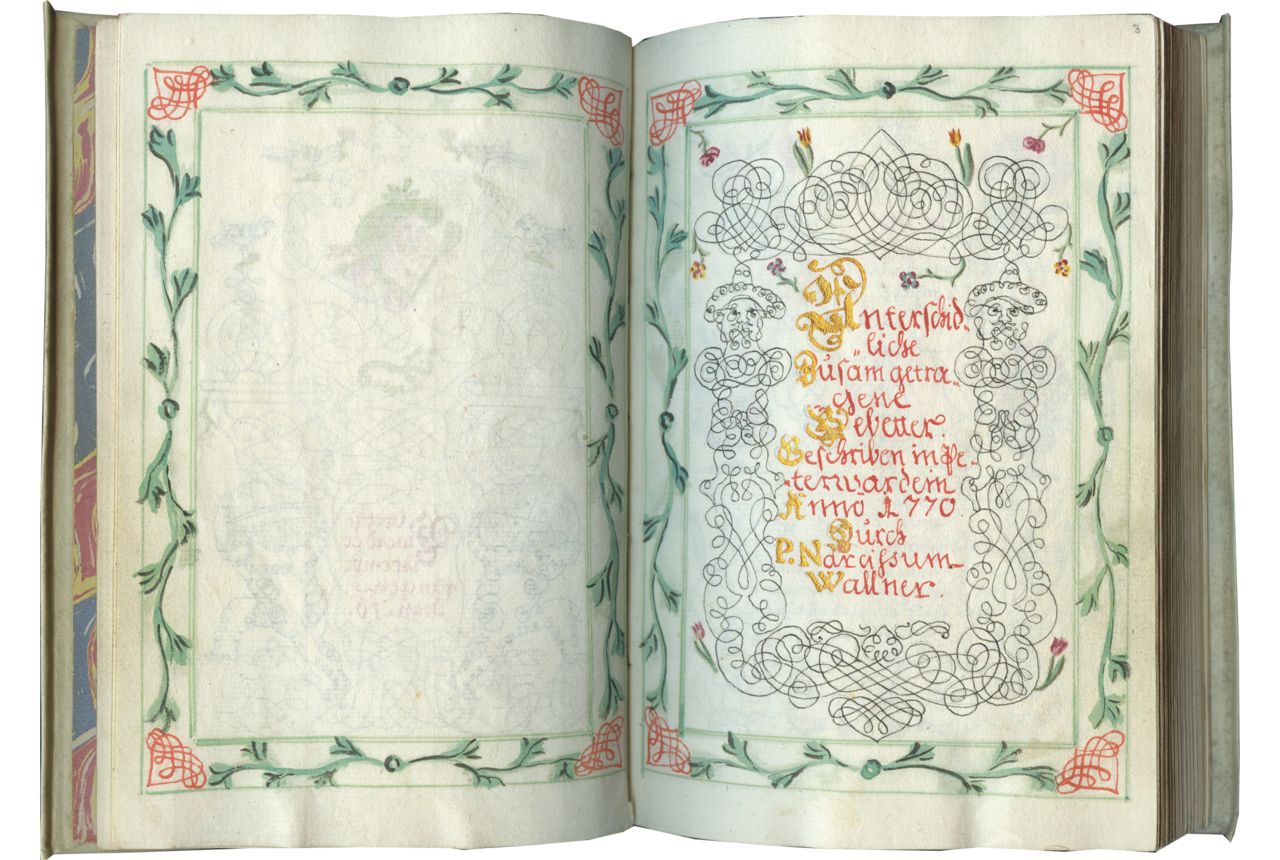 3
Unterschid„
„liche
Zusamgetra„
gene
Gebetter.
Beschriben in Pe„
„terwardein
Anno 1770
Durch
P. Narcißum
Wallner.